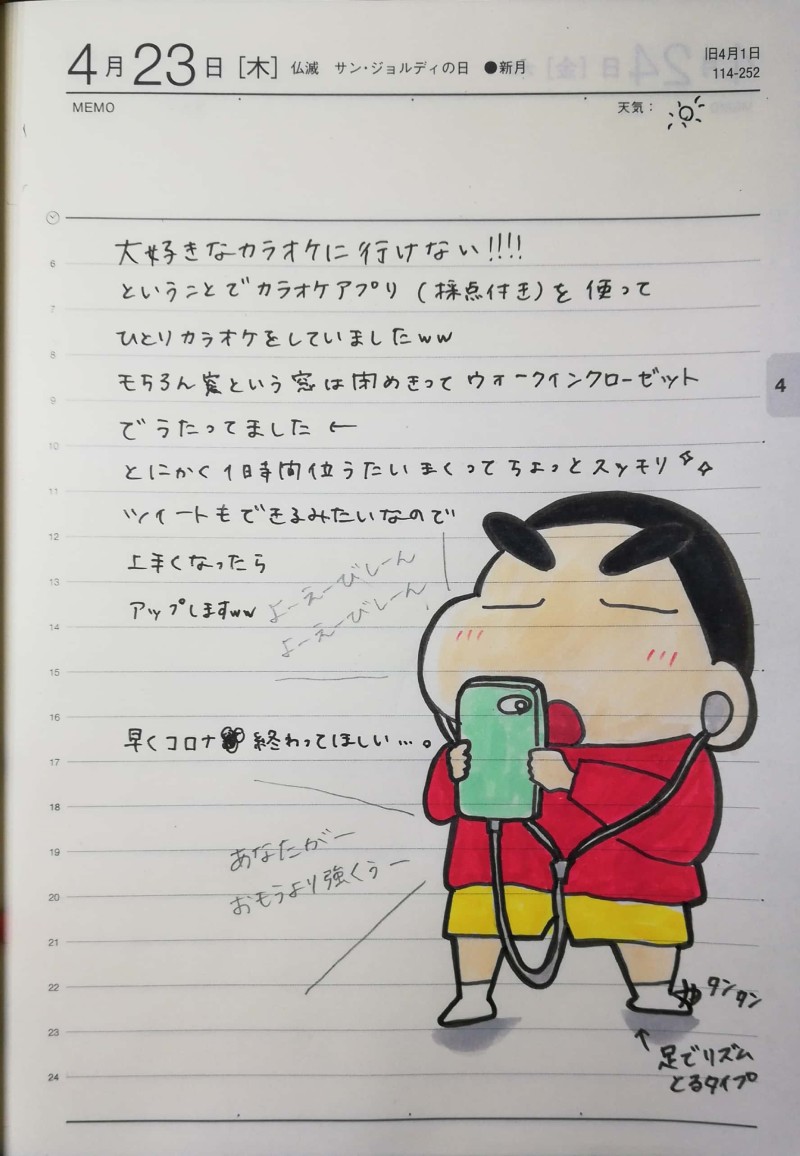 4月23日 [木] 仏滅 サン・ジョルディの日 ●新月
旧4月1日
114-252
MEMO
天気：
大好きなカラオケに行けない!!!!
ということでカラオケアプリ(採点付き)を使って
ひとりカラオケをしていましたww
もちろん窓という窓は閉めきってウォークインクローゼット
でうたってました←
とにかく1日時間位うたいまくってちょっとスッキリ
ツイートもできるみたいなので
上手くなったら
アップしますww
よーえーびしーん
よーえーびしーん
早くコロナ終わってほしい…。
あなたがー
おもうより強くぅー
タンタン
↑
足でリズム
とるタイプ
4
6
7
8
9
10
11
12
13
14
15
16
17
18
19
20
21
22
23
24